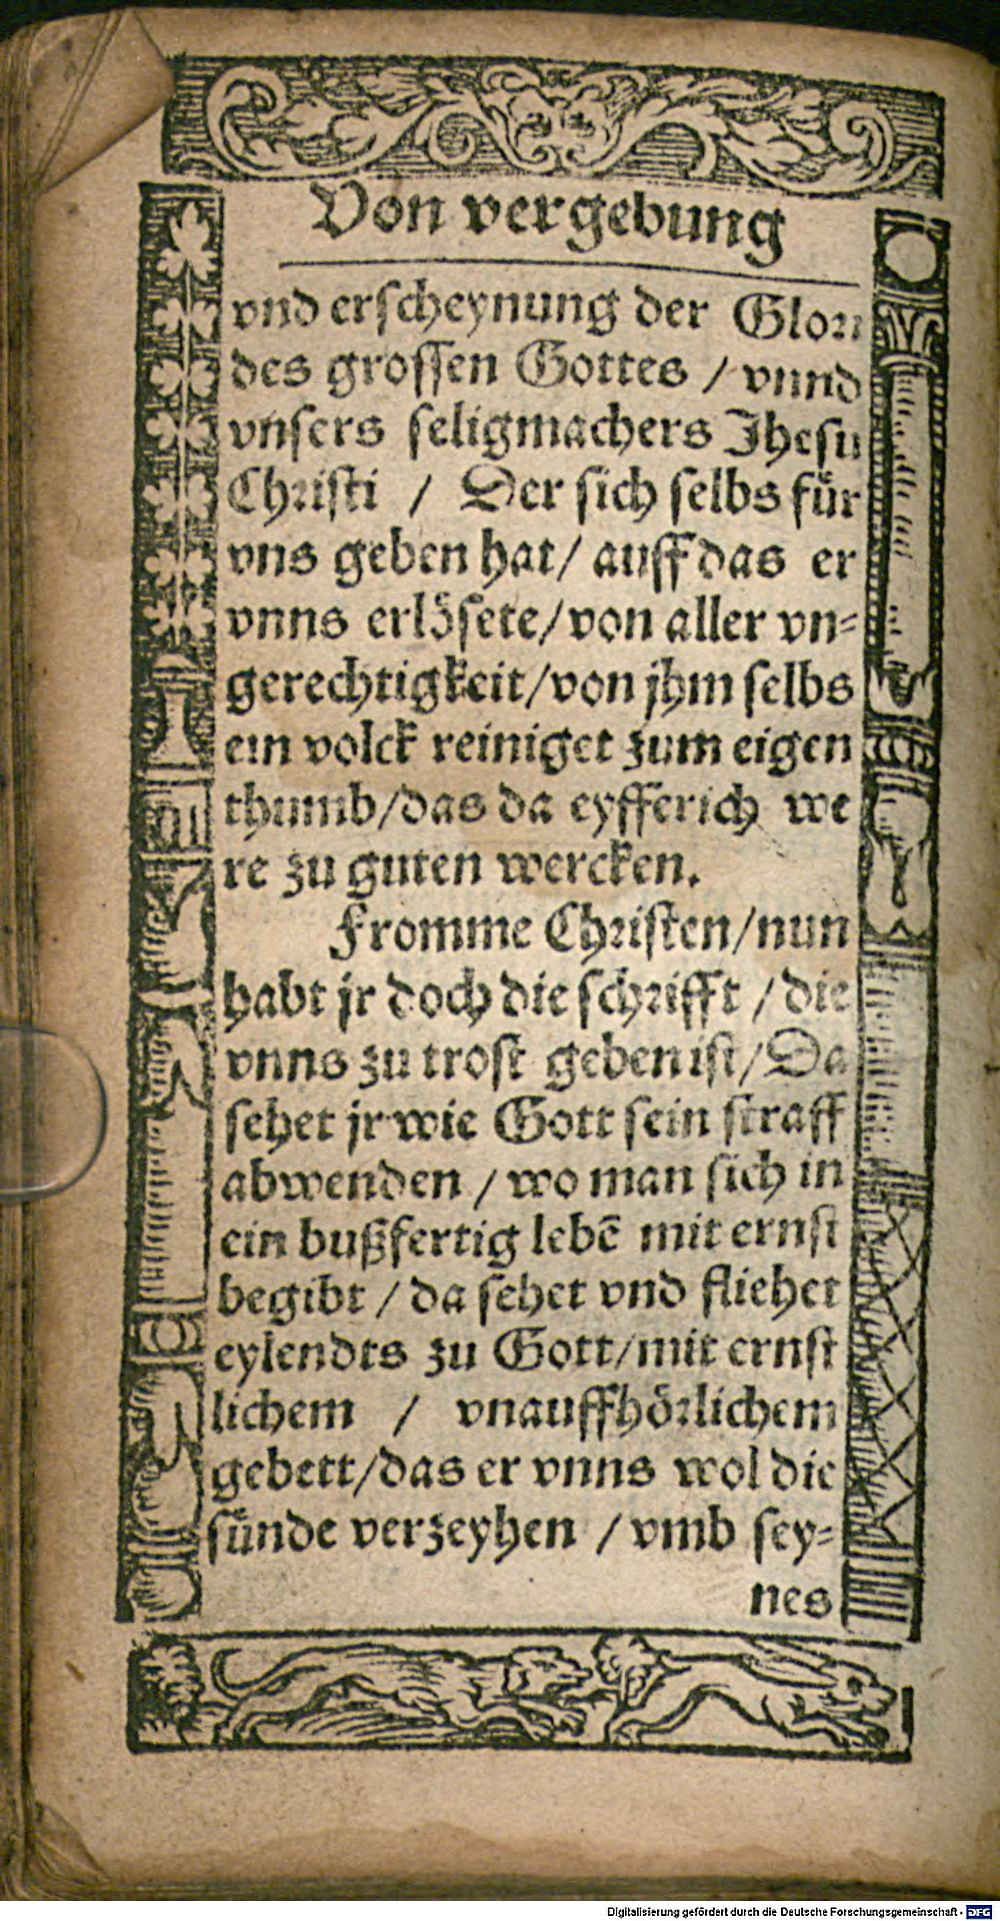 Von vergebung
vnd erscheynung der Glori
des grossen Gottes / vnnd
vnsers seligmachers Jhesu
Christi / Der sich selbs für
vns geben hat/ auff das er
vnns erlösete/von aller vn-
gerechtigkeit/von jhm selbs
ein volck reiniget zum eigen
thumb/das da eyfferich we
re zu guten wercken.
Fromme Christen/nun
habt jr doch die schrifft / die
vnns zu trost geben ist/Da
sehet jr wie Gott sein straff
abwenden / wo man sich in
ein bußfertig lebē mit ernst
begibt / da sehet vnd fliehet
eylendts zu Gott/mit ernst
lichem / vnauffhörlichem
gebett/das er vnns wol die
sünde verzeyhen / vmb sey-
nes
Digitalisierung gefördert durch die Deutsche Forschungsgemeinschaft - DFG